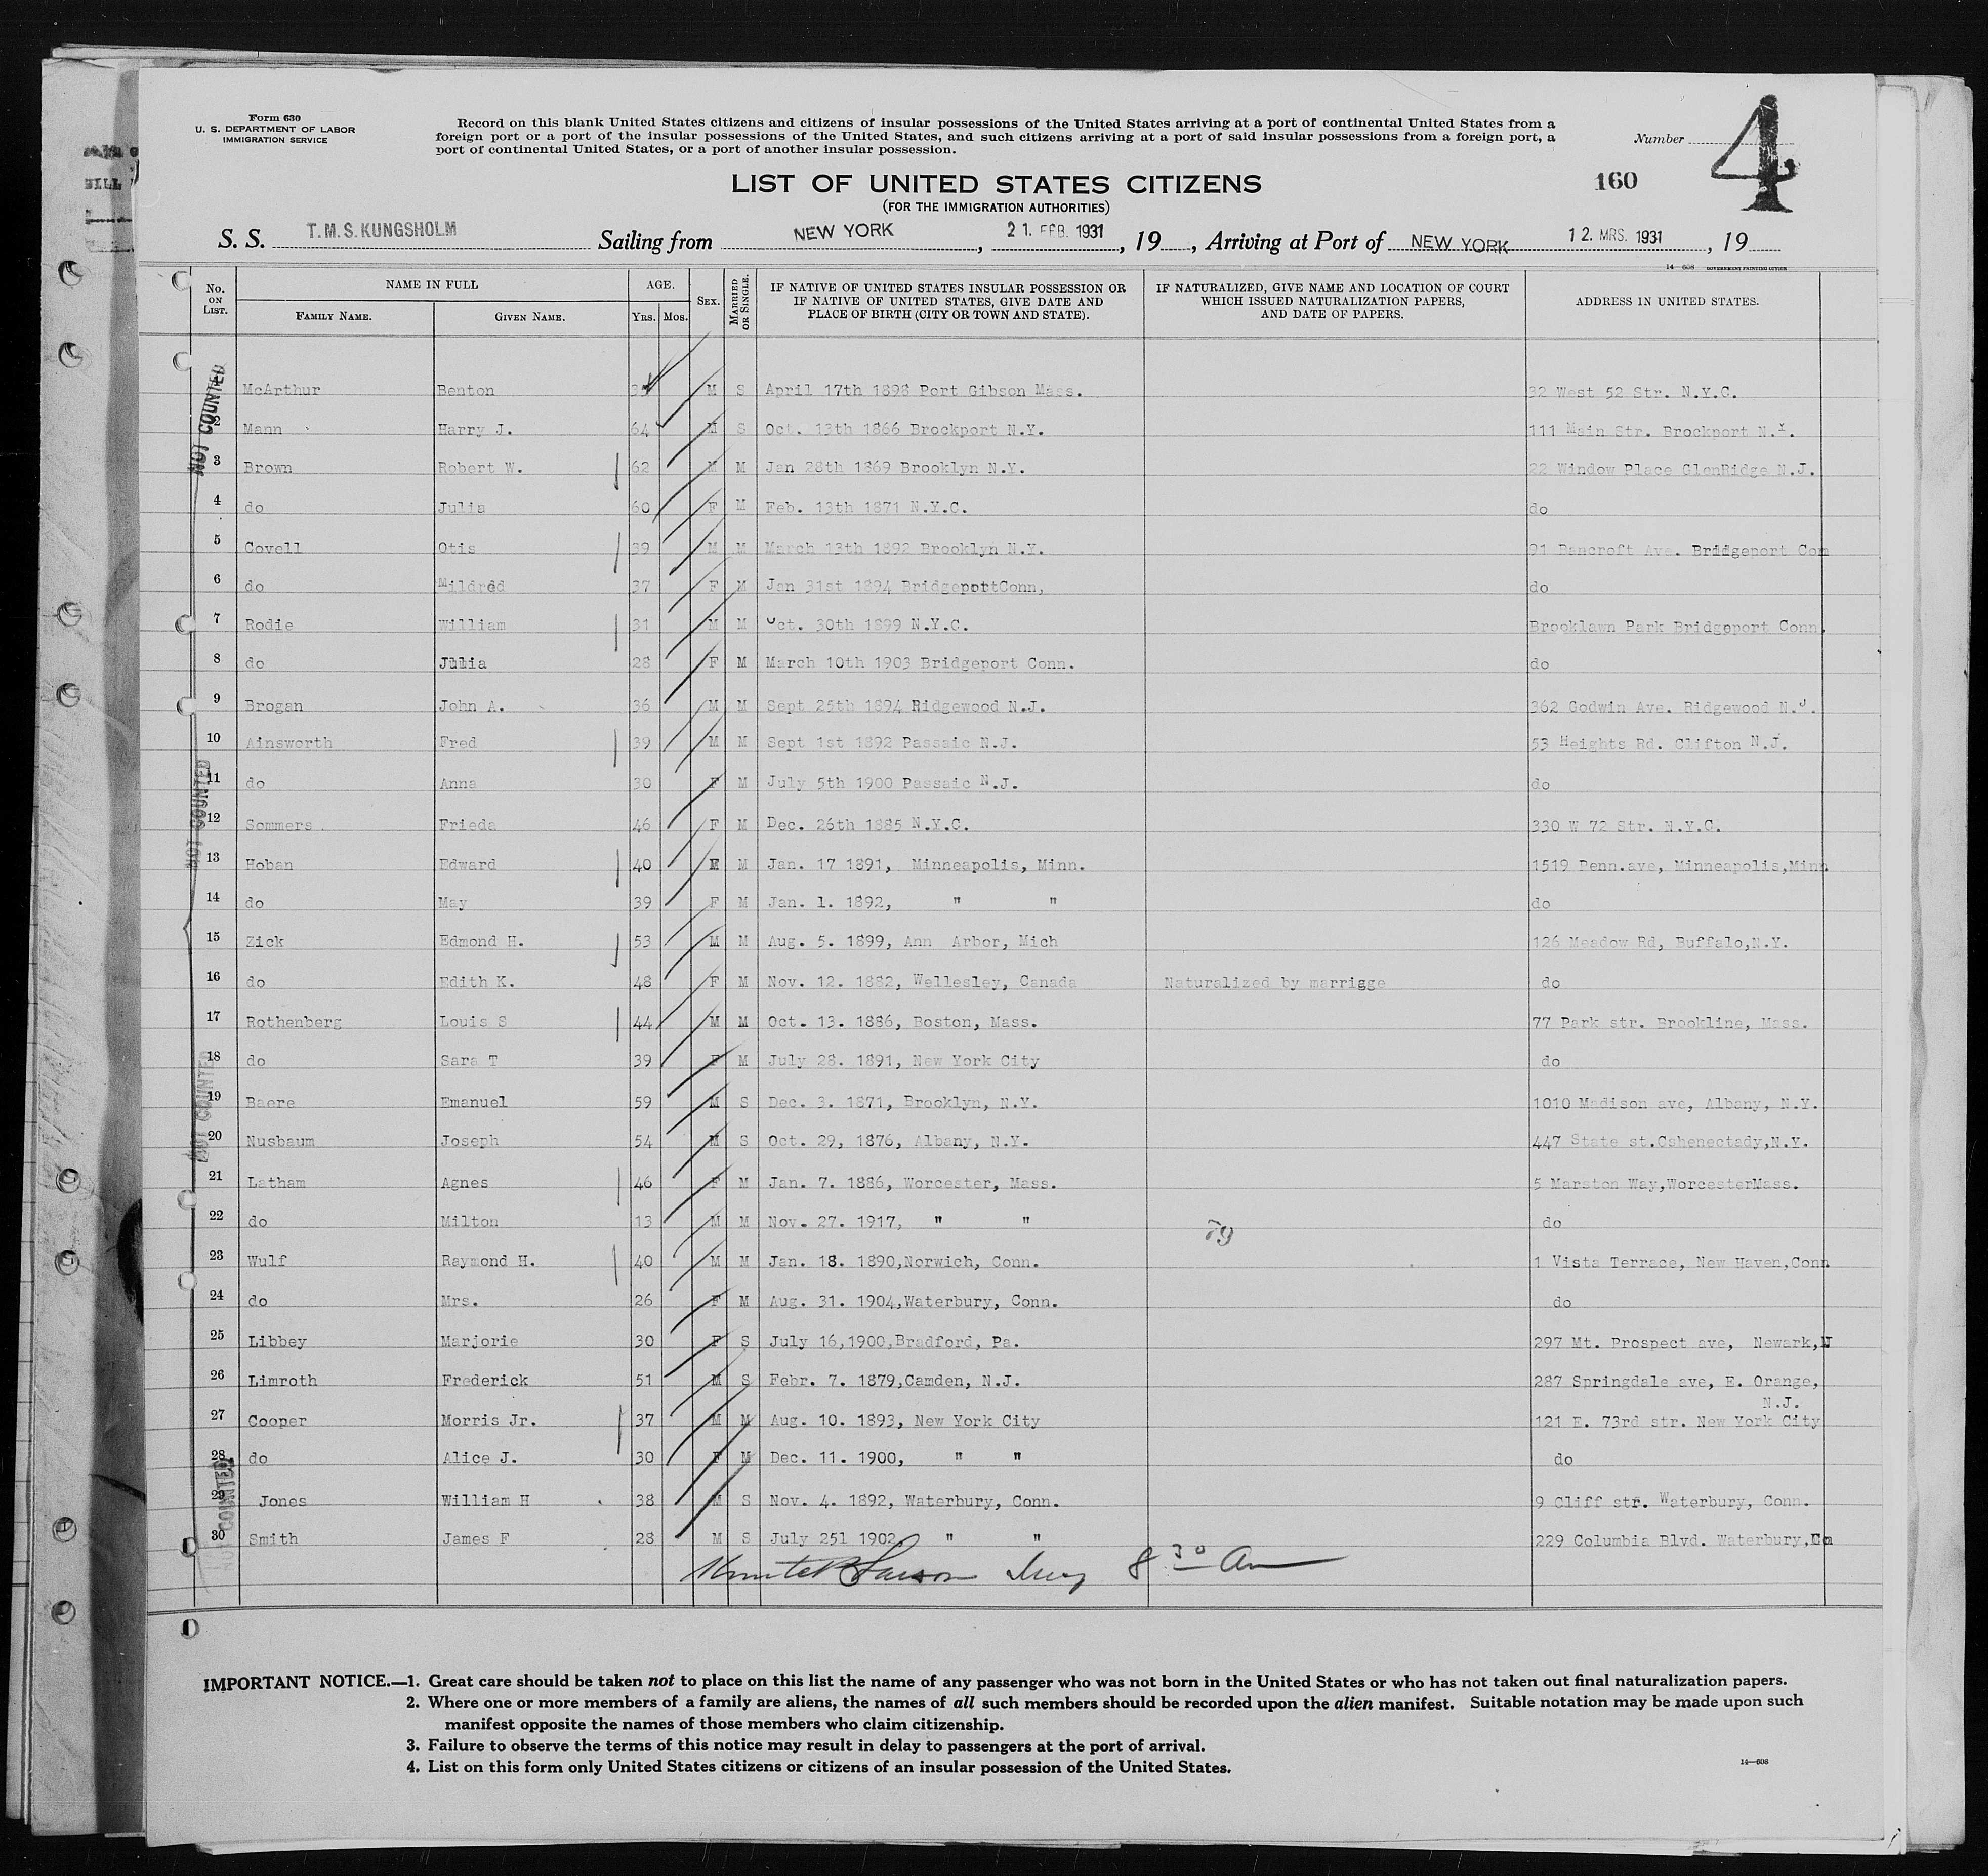 Form 630
U. S. DEPARTMENT OF LABOR
IMMIGRATION SERVICE
Record on this blank United States citizens and citizens of insular possessions of the United States arriving at a port of continental United States from a
foreign port or a port of the insular possessions of the United States, and such citizens arriving at a port of said insular possessions from a foreign port, a
port of continental United States, or a port of another insular possession.
Number 4
160
LIST OF UNITED STATES CITIZENS
(FOR THE IMMIGRATION AUTHORITIES)
S. S. T.M.S. KUNGSHOLM Sailing from NEW YORK, 21. FEB. 1931, 19 , Arriving at Port of NEW YORK 12. MRS. 1931, 19
14—608 GOVERNMENT PRINTING OFFICE
No. ON LIST. NAME IN FULL AGE. SEX. MARRIED OR SINGLE. IF NATIVE OF UNITED STATES INSULAR POSSESSION OR IF NATIVE OF UNITED STATES, GIVE DATE AND PLACE OF BIRTH (CITY OR TOWN AND STATE). IF NATURALIZED, GIVE NAME AND LOCATION OF COURT WHICH ISSUED NATURALIZATION PAPERS, AND DATE OF PAPERS. ADDRESS IN UNITED STATES.
FAMILY NAME. GIVEN NAME. YRS. MOS.
NOT COUNTED
McArthur Benton M S April 17th 1898 Port Gibson Mass. 32 West 52 Str. N.Y.C.
2 Mann Harry J. 64 M S Oct. 13th 1866 Brockport N.Y. 111 Main Str. Brockport N.Y.
3 Brown Robert W. 62 M M Jan 28th 1869 Brooklyn N.Y. 22 Window Place GlenRidge N.J.
4 do Julia 60 F M Feb. 13th 1871 N.Y.C. do
5 Covell Otis 39 M M March 13th 1892 Brooklyn N.Y. 91 Bancroft Ave. Bridgeport Con
6 do Mildred 37 F M Jan 31st 1894 BridgeportConn, do
7 Rodie William 31 M M Oct. 30th 1899 N.Y.C. Brooklawn Park Bridgeport Conn.
8 do Julia 28 F M March 10th 1903 Bridgeport Conn. do
9 Brogan John A. 36 M M Sept 25th 1894 Ridgewood N.J. 362 Godwin Ave. Ridgewood N.J.
10 Ainsworth Fred 39 M M Sept 1st 1892 Passaic N.J. 53 Heights Rd. Clifton N.J.
NOT COUNTED
11 do Anna 30 F M July 5th 1900 Passaic N.J. do
12 Sommers Frieda 46 F M Dec. 26th 1885 N.Y.C. 330 W 72 Str. N.Y.C.
13 Hoban Edward 40 M M Jan. 17 1891, Minneapolis, Minn. 1519 Penn.ave, Minneapolis,Minn
14 do May 39 F M Jan. 1. 1892, " " do
15 Zick Edmond H. 53 M M Aug. 5. 1899, Ann Arbor, Mich 126 Meadow Rd, Buffalo,N.Y.
16 do Edith K. 48 F M Nov. 12. 1882, Wellesley, Canada Naturalized by marrigge do
17 Rothenberg Louis S 44 M M Oct. 13. 1886, Boston, Mass. 77 Park str. Brookline, Mass.
18 do Sara T 39 F M July 28. 1891, New York City do
NOT COUNTED
19 Baere Emanuel 59 M S Dec. 3. 1871, Brooklyn, N.Y. 1010 Madison ave, Albany, N.Y.
20 Nusbaum Joseph 54 M S Oct. 29, 1876, Albany, N.Y. 447 State st.Cshenectady,N.Y.
21 Latham Agnes 46 F M Jan. 7. 1886, Worcester, Mass. 5 Marston Way,WorcesterMass.
22 do Milton 13 M M Nov. 27. 1917, " " do
79
23 Wulf Raymond H. 40 M M Jan. 18. 1890,Norwich, Conn. 1 Vista Terrace, New Haven,Conn
24 do Mrs. 26 F M Aug. 31. 1904,Waterbury, Conn. do
25 Libbey Marjorie 30 F S July 16,1900,Bradford, Pa. 297 Mt. Prospect ave, Newark,
26 Limroth Frederick 51 M S Febr. 7. 1879,Camden, N.J. 287 Springdale ave, E. Orange,
N.J.
27 Cooper Morris Jr. 37 M M Aug. 10. 1893, New York City 121 E. 73rd str. New York City
28 do Alice J. 30 F M Dec. 11. 1900, " " do
29 Jones William H 38 M S Nov. 4. 1892, Waterbury, Conn. 9 Cliff str. Waterbury, Conn.
NOT COUNTED
30 Smith James F 28 M S July 251 1902 " " 229 Columbia Blvd. Waterbury,Co
8 30 Am
IMPORTANT NOTICE.—1. Great care should be taken not to place on this list the name of any passenger who was not born in the United States or who has not taken out final naturalization papers.
2. Where one or more members of a family are aliens, the names of all such members should be recorded upon the alien manifest. Suitable notation may be made upon such
manifest opposite the names of those members who claim citizenship.
3. Failure to observe the terms of this notice may result in delay to passengers at the port of arrival.
4. List on this form only United States citizens or citizens of an insular possession of the United States.
14—608